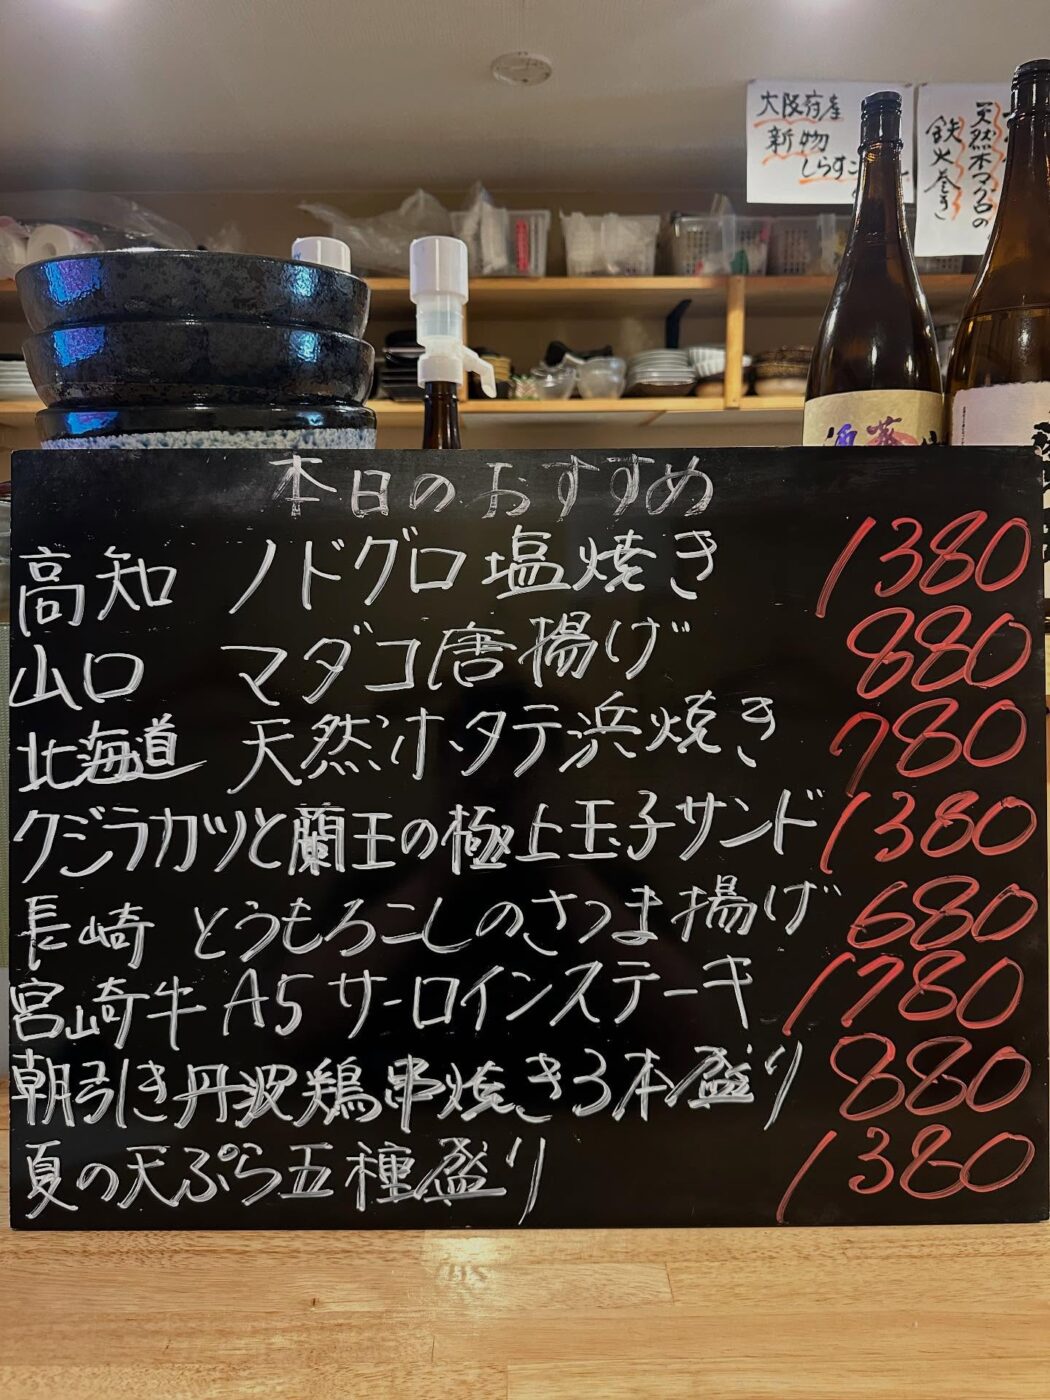 大阪府産
新物
しらす
天然本マグロの
鉄火巻き
本日のおすすめ
高知 ノドグロ塩焼き 1380
山口 マダコ唐揚げ 880
北海道 天然ホタテ浜焼き 780
クジラカツと蘭王の極上玉子サンド 1380
長崎 とうもろこしのさつま揚げ 680
宮崎牛 A5 サーロインステーキ 1780
朝引き丹波鶏串焼き3本盛り 880
夏の天ぷら五種盛り 1380